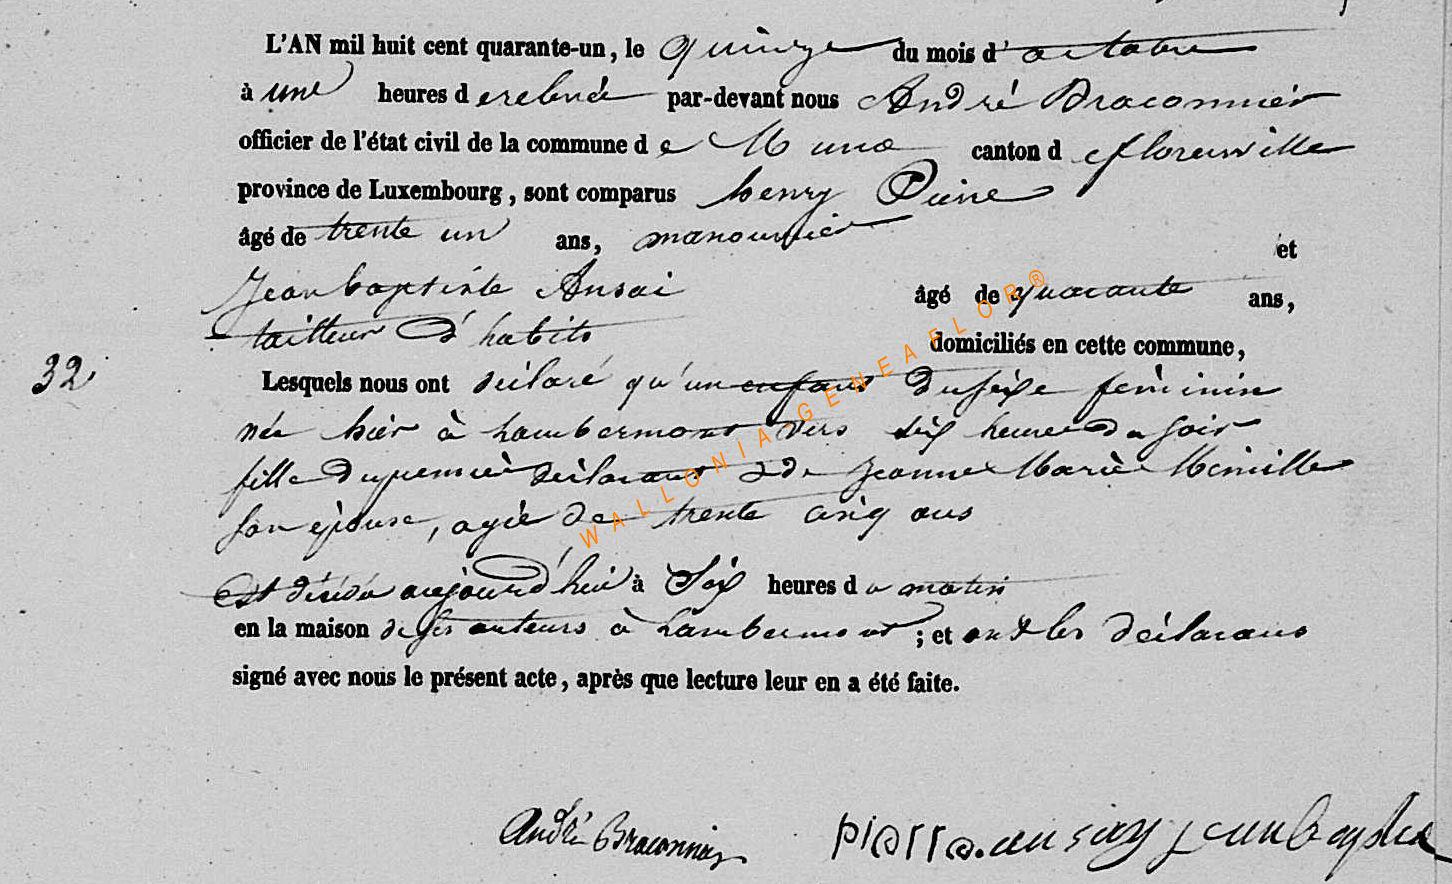 L'AN mil huit cent quarante-un, le quinze du mois d'octobre
à une heures d e relevée par-devant nous André Braconnier
officier de l'état civil de la commune d e Muno canton d e florenville
province de Luxembourg, sont comparus henry Pierre
âgé de trente un ans, manouvrier et
Jean baptiste Ansai âgé de quarante ans,
tailleur d'habits domiciliés en cette commune,
32. Lesquels nous ont déclaré qu'un enfant du sexe féminin
née hier à Lambermont vers six heures du soir
fille du premier déclarant & de Jeanne Marie
son épouse, agée de trente cinq ans
est décédée aujourd'hui à Six heures d u matin
en la maison de ses auteurs à Lambermont ; et ont les déclarans
signé avec nous le présent acte, après que lecture leur en a été faite.
André Braconnier pierre ansay jean baptiste
WALLONIA-GENEAFLOR®